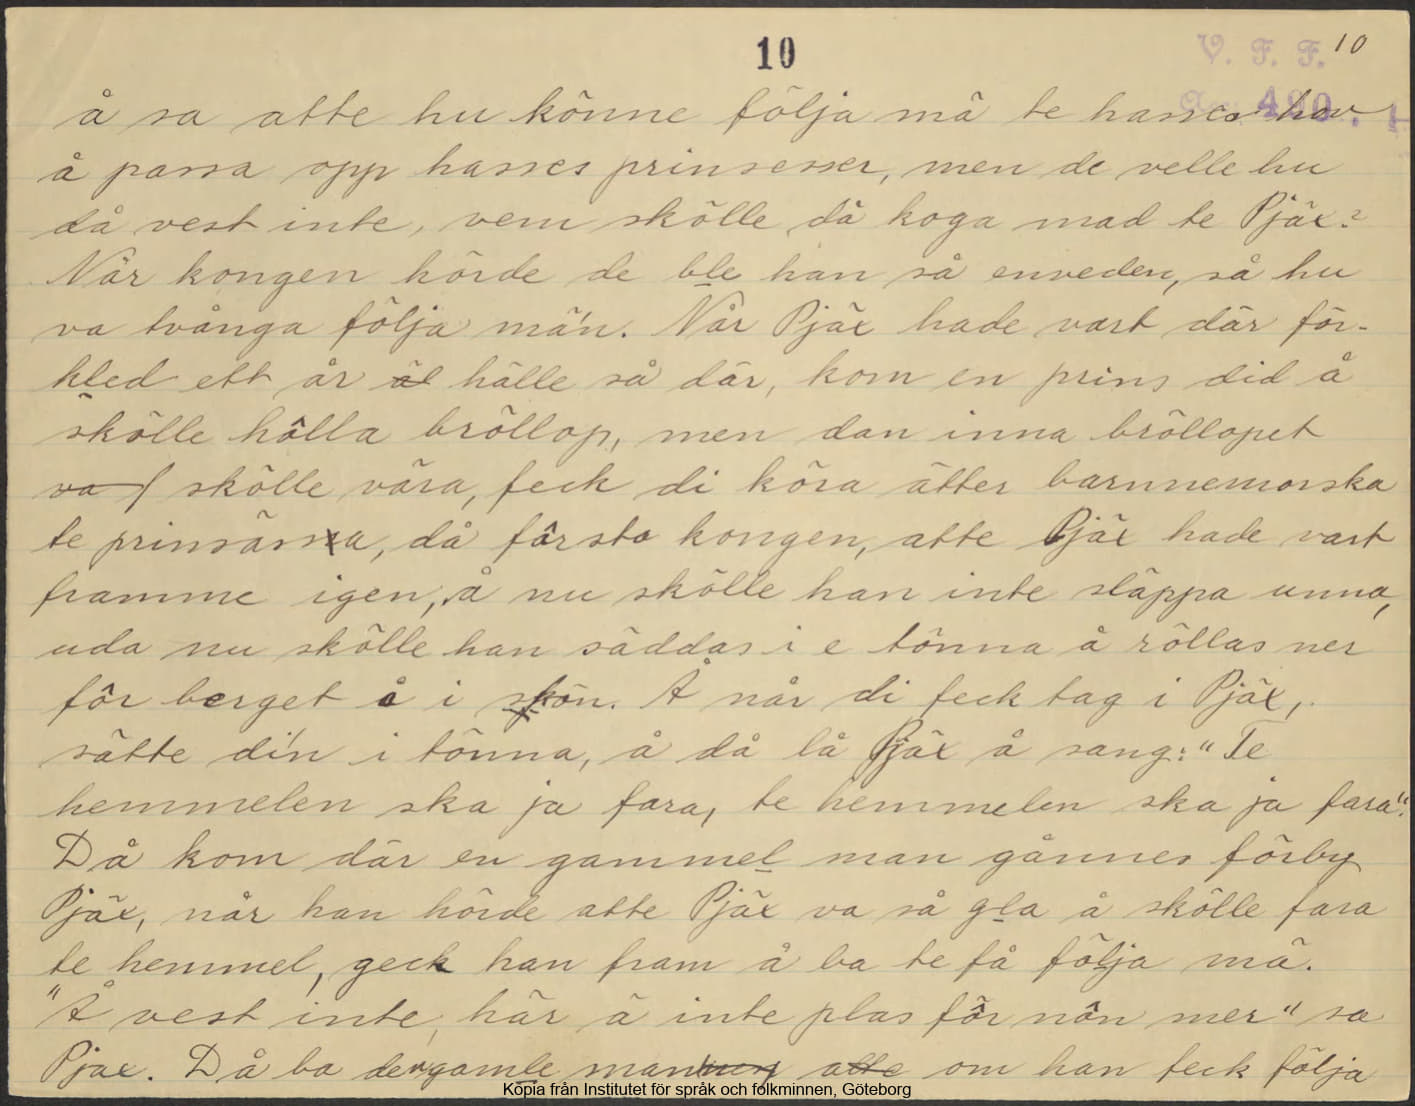 10
V. F. F. 10
å sa atte hu könne följa mä te hasses hov
å passa opp hasses prinsesser, men de velle hu
då vest inte, vem skölle då koga mad te Pjäx?
Når kongen hörde de ble han så enveden, så hu
va tvånga följa mä'n. Når Pjäx hade vart där för-
kled ett år äl hälle så där, kom en prins did å
skölle hôlla bröllop, men dan inna bröllopet
va skölle våra, feck di köra ätter barnnemorska
te prinsässa, då fôrsto kongen, atte Pjäx hade vart
framme igen, å nu skölle han inte släppa unna,
uda nu skölle han säddas i e tônna å röllas ner
fôr berget å i skôn. Å når di feck tag i Pjäx,
sätte di'n i tônna, å då lå Pjäx å sang: "Te
hemmelen ska ja fara, te hemmelen ska ja fara".
Då kom där en gammel man gånnes förby
Pjäx, når han hörde atte Pjäx va så gla å skölle fara
te hemmel, geck han fram å ba te få följa mä.
"Å vest inte, här ä inte plas fôr nôn mer" sa
Pjäx. Då ba den gamle man atte om han feck följa
Kopia från Institutet för språk och folkminnen, Göteborg